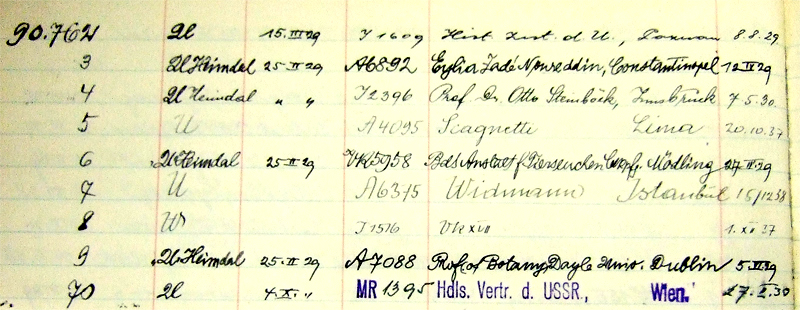 90.762 Ul 15.III29 J1609 Hist. Inst. d. U., 8.8.29.
3 Ul Heimdal 25-II 29 A6892 Eyha Zadé Noureddin, Constantinopel 12 IV 29
4 Ul Heimdal " " J2396 Prof. Dr. Otto Steinböck, Innsbruck 7 5.30.
5 U A4095 Scagnetti Lima 20.10.37
6 Ul Heimdal 25 II 29 VK5958 Bds Anstalt f Tierseuchen Mödling 27 29
7 U A6315 Widmann Istanbul 15/12 38
8 W J1516 1. XII 27
9 Ul Heimdal 25.II 29 A7088 Prof of Botany Dublin 5. 29
70 Ul 4.X. " MR 1395 Hdls. Vertr. d. USSR., Wien. 30